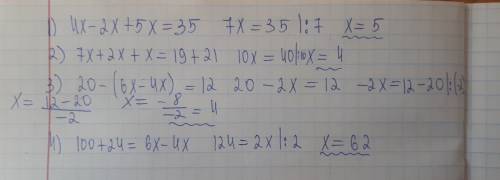 1) 4x-2x+5x=35 7x=35 |:7 x=5
2) 7x+2x+x=19+21 10x=40|:10 x=4
3) 20-(6x-4x)=12 20-2x=12 -2x=12-20|:(-2)
x=12-20/-2 x=-8/-2=4
4) 100+24=6x-4x 124=2x|:2 x=62